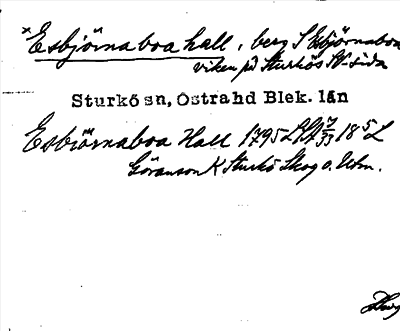 ×Esbjörnaboa hall, berg S Esbjörnaboa
viken på Sturkös NV-sida
Sturkö sn, Östra hd Blek. län
Esbiörnaboa Hall 1795 LSA 18
Göranson K Sturkö Skog o. Utm.